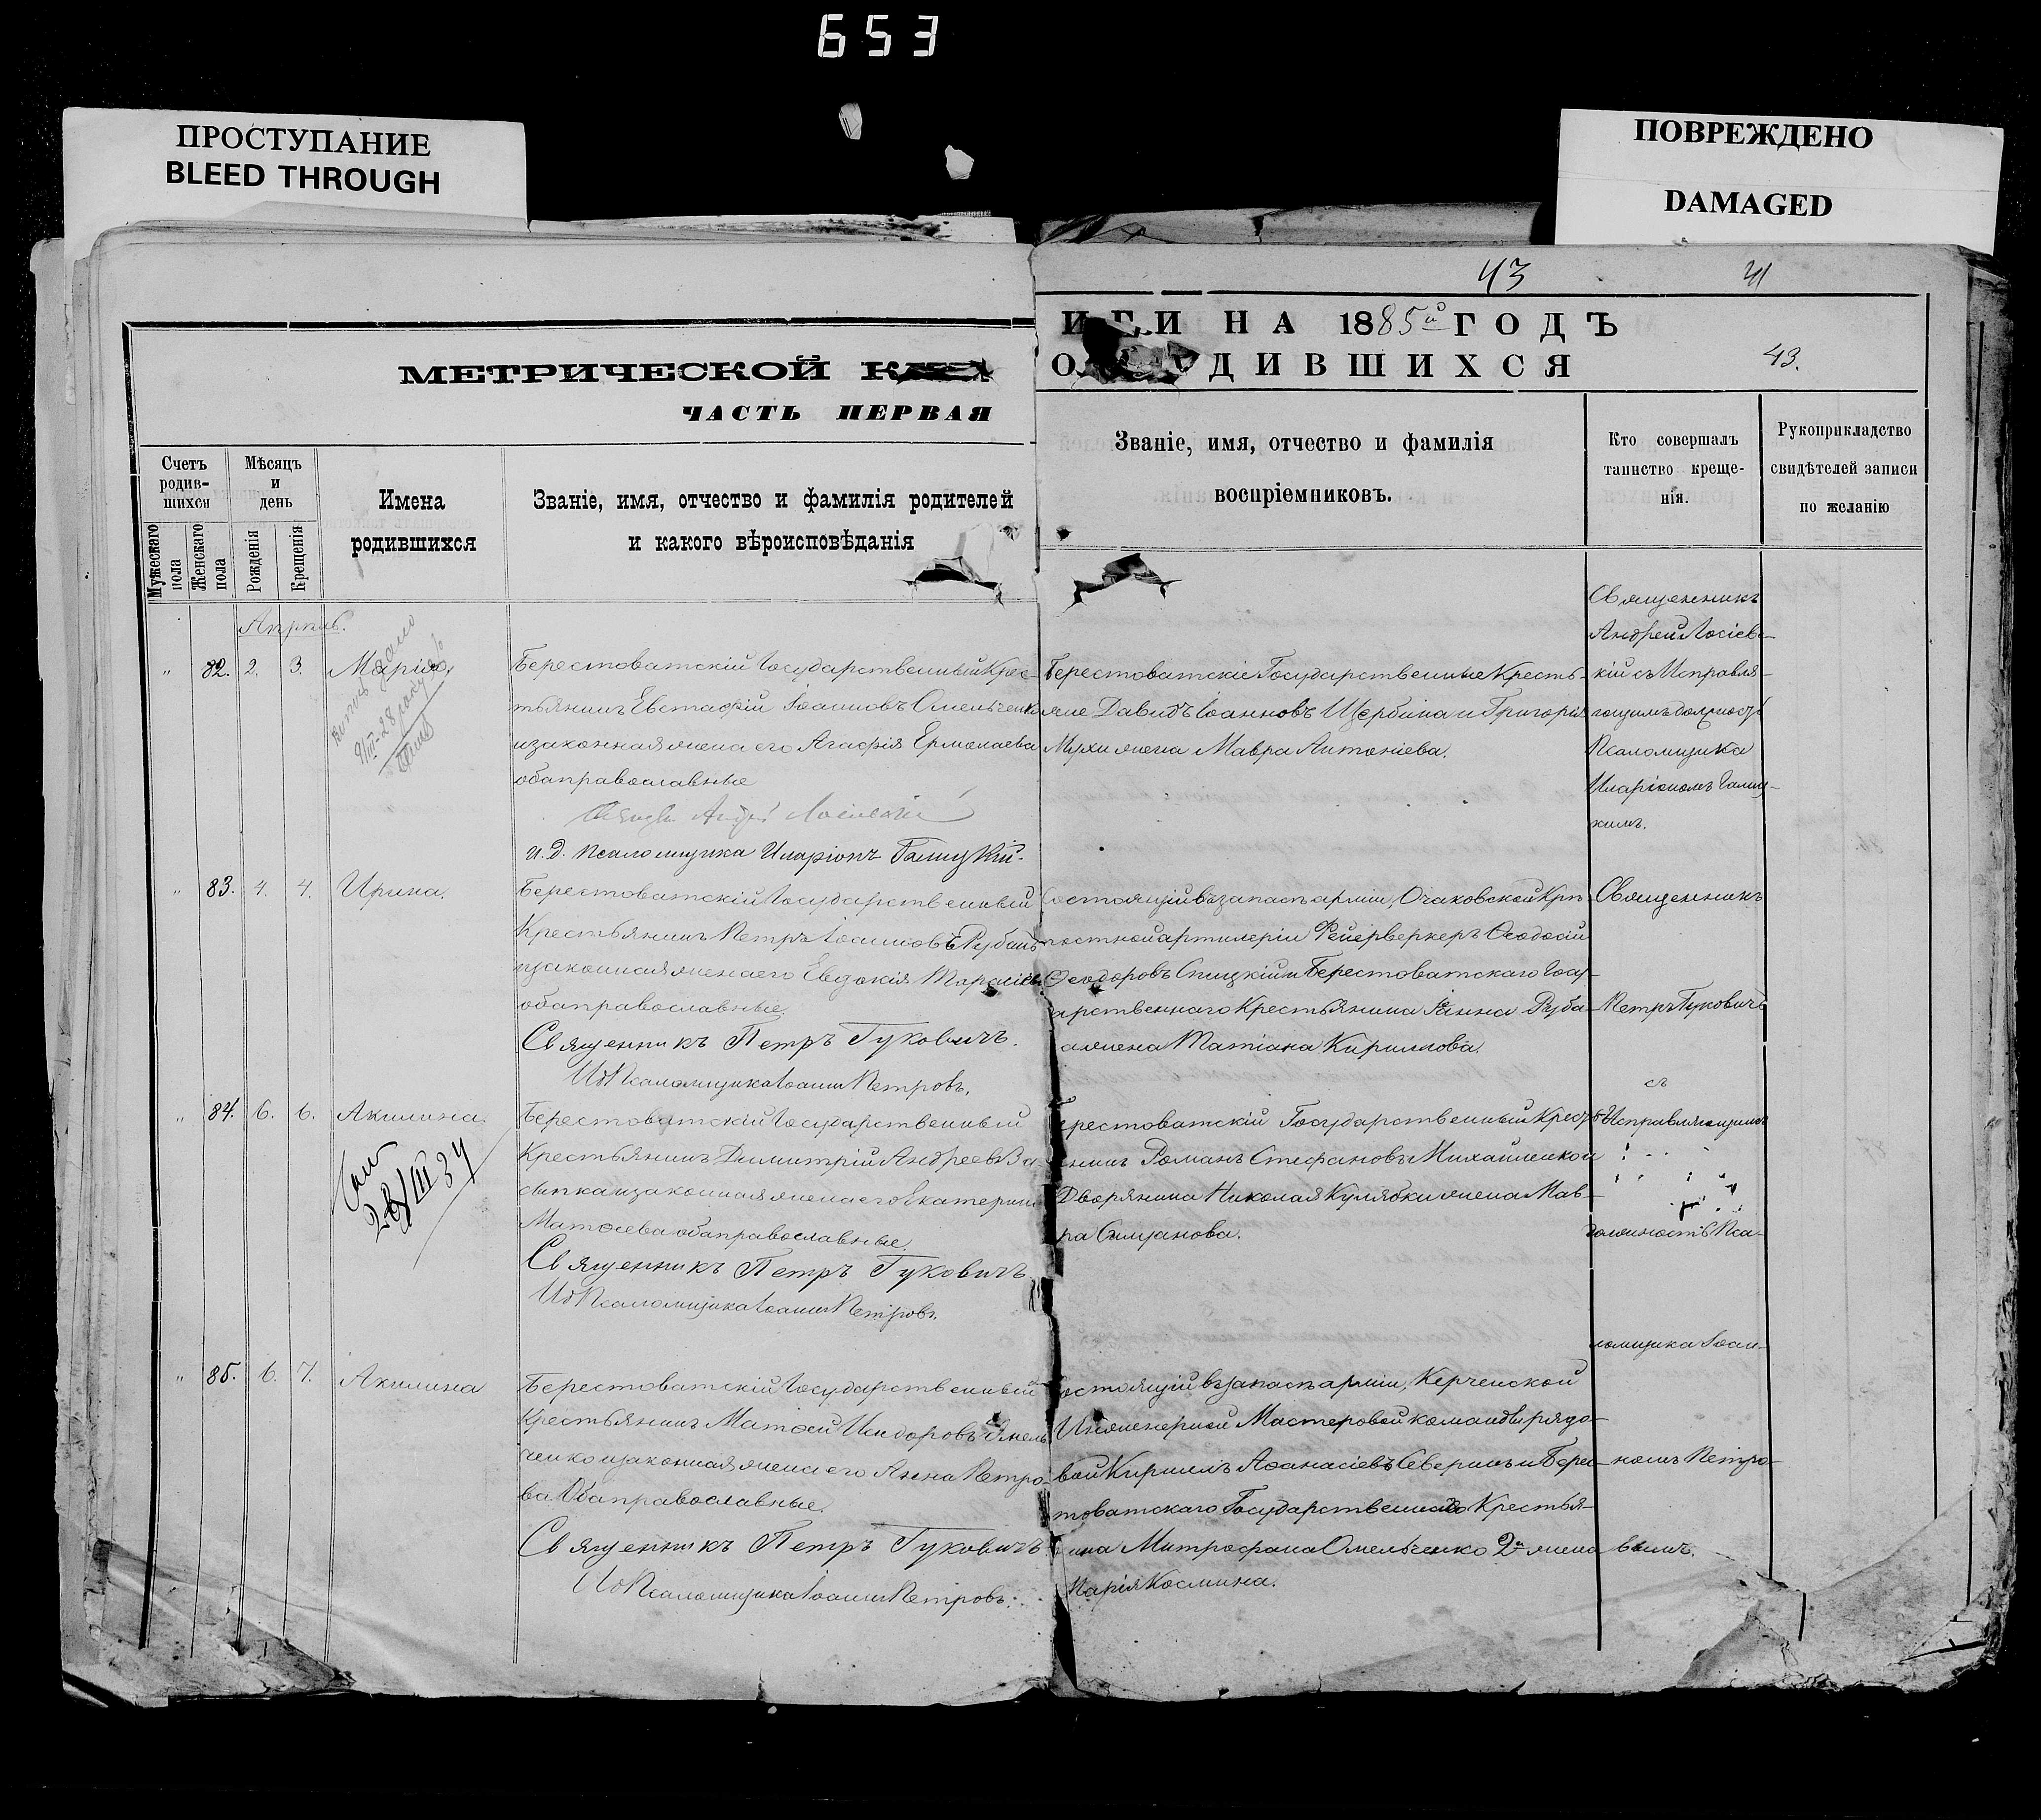 653
ПРОСТУПАНИЕ
BLEED THROUGH
ПОВРЕЖДЕНО
DAMAGED
43
41
МЕТРИЧЕСКОЙ
ЧАСТЬ ПЕРВАЯ
Счетъ родив-шихся
Мужескаго пола
Женскаго пола
Мѣсяцъ и день
Рожденія
Крещенія
Имена родившихся
Званіе, имя, отчество и фамилія родителей
и какого вѣроисповѣданія
ИГИ НА 1885й ГОДЪ
ДИВШИХСЯ
43.
Званіе, имя, отчество и фамилія
воспріемниковъ.
Кто совершалъ
таинство креще-
нія.
Рукоприкладство
свидѣтелей записи
по желанію
" 82. 2. 3. Марія
Берестоватскій Государственный Крес-
тьянинъ Евстафій Іоанновъ Омельченко
и законная жена его Агафія Ермолаева
оба православные
и.д. Псаломщика Иларіонъ Галицкій.
Берестоватскіе Государственные Кресть-
яне Давидъ Іоанновъ Щербина и Григорія
жена Мавра Антоніева.
Священникъ
Андрей Лосіевс-
кій съ Исправля-
ющимъ должность
Псаломщика
Иларіономъ Галиц-
кимъ.
" 83. 4. 4. Ирина.
Берестоватскій Государственный
Крестьянинъ Петръ Іоанновъ
и законная жена его Евдокія
оба православные.
Священникъ Петръ Гуковичъ.
ИдПсаломщика Іоаннъ Петровъ.
Состоящій въ запасѣ арміи, Очаковской Крѣ
постной артилеріи Фейерверкеръ Ѳеодосій
Ѳеодоровъ и Берестоватскаго Госу-
дарственнаго Крестьянина
жена Татіана Кириллова.
Священникъ
Петръ Гуковичъ
съ
" 84. 6. 6. Акилина.
28/III 34
Берестоватскій Государственный
Крестьянинъ Димитрій Андреевъ
и законная жена его Екатерина
Матѳеева оба православные.
Священникъ Петръ Гуковичъ.
ИдПсаломщика Іоаннъ Петровъ.
Берестоватскій Государственный Кресть
янинъ Романъ Стефановъ Михайленко и
Дворянина Николая Кулябки жена Мав-
ра
Исправляющимъ
должность Пса-
ломщика Іоан-
" 85. 6. 7. Акилина
Берестоватскій Государственный
Крестьянинъ Матѳей
ченко и законная жена его Анна Петро-
ва Оба православные.
Священникъ Петръ Гуковичъ.
ИдПсаломщика Іоаннъ Петровъ.
Состоящій въ запасѣ арміи, Керченской
Инженерной Мастеровой команды рядо-
вой Кириллъ Аѳанасіевъ Северинъ и Берес-
товатскаго Государственнаго Крестья-
нина Митрофана Омельченко 2й жена
Марія Космина.
номъ Петро-
вымъ.